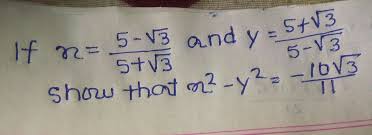 If x = (5-√3)/(5+√3) and y = (5+√3)/(5-√3)
show that x² - y² = -10√3/11